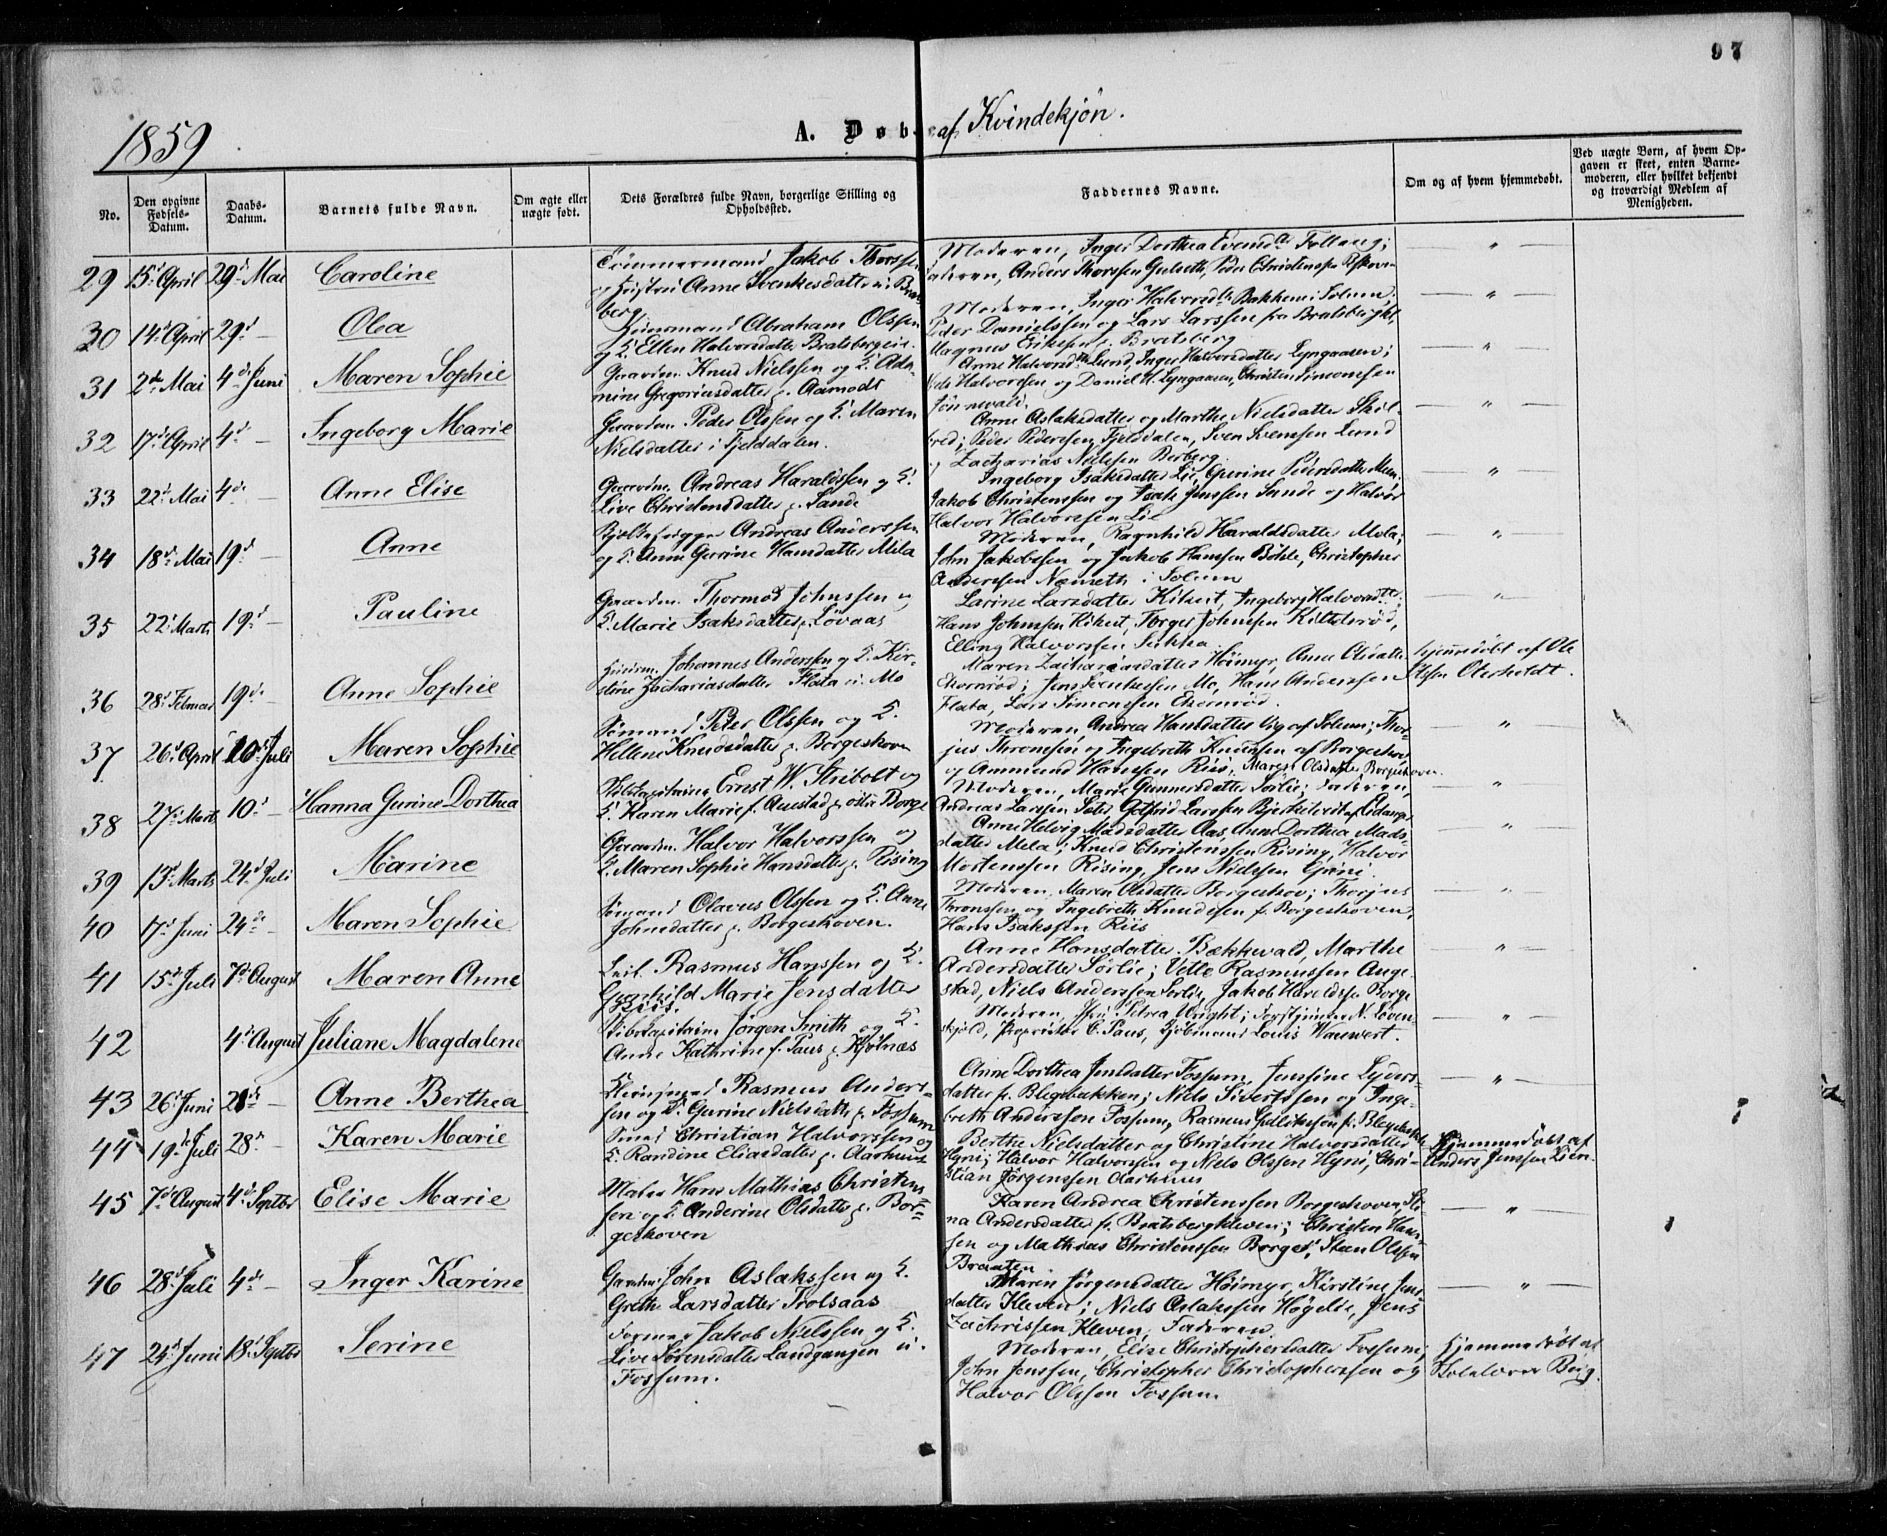 97
1859
A. Døbte af Kvindekjøn.
No.
Den opgivne Fødsels-Datum.
Daabs-Datum.
Barnets fulde Navn.
Om ægte eller uægte født.
Dets Forældres fulde Navn, borgerlige Stilling og Opholdssted.
Faddernes Navne.
Om og af hvem hjemmedøbt.
Ved uægte Børn, af hvem Opgaven er skeet, enten Barnemoderen, eller hvilket bekjendt og troværdigt Medlem af Menigheden.
29 15d April 29d Mai Caroline
Tømmermand Jakob Thorssen
og Anne Svenkesdatter i Bratsberg
Moderen, Inger Dorthea Evensdtr Follaug;
Faderen, Anders Thorssen Gulseth, Peder Christenssen
30 14d April 29d — Olea
Abraham Olssen
og K. Ellen Halvorsdatter Bratsbergeie
Moderen, Inger Halvorsdtr Bakken i Solum;
Peder Danielssen og Lars Larssen fra Bratsbergkl.
Magnus Erikssen f. Bratsberg
31 2d Mai 4d Juni Maren Sophie
Gaardm. Knud Nielssen og K. Adamine Gregoriusdatter p. Aamodt
Anne Halvorsdtr Lund, Inger Halvorsdatter Lyngaasen;
Nils Halvorssen og Daniel H. Lyngaasen, Christen Simonssen
32 17d April 4d — Ingeborg Marie
Gaardm. Peder Olssen og K. Maren
Nielsdatter i Fjelddalen.
Anne Aslaksdatter og Marthe Nielsdatter Skilbred; Peder Pederssen Fjelddalen, Sven Svenssen Lund
og Zacharias Nielssen Berberg
33 22d Mai 4de — Anne Elise
Gaardm. Andreas Haraldssen og K.
Live Christensdatter p. Sande
Ingeborg Isaksdatter Lie, Gurine Pedersdatter Meen
Jakob Christenssen og Isak Jenssen Sande og Halvor
Halvor Halvorssen Lie
34 18d Mai 19d — Anne
Andreas Anderssen
og K. Anne Gurine Hansdatter Mæla
Moderen, Ragnhild Haraldsdatter Mæla;
John Jakobssen og Jakob Hanssen Bøhle, Christopher
Anderssen Næmeth i Solum
35 22d Marts 19d — Pauline
Gaardm. Thormod Johnssen og
K. Marie Isaksdatter p. Løvaas
Larine Larsdatter Kikut, Ingeborg Halvorsdtr;
Hans Johnssen Kikut, Torger Johnssen Kittelsrød,
Elling Halvorssen
36 28d Februar 19de — Anne Sophie
Johannes Anderssen og K. Kirstine Zachariasdatter Flata u. Mo
Maren Zachariasdatter Høimyr, Anne Olsdatter
Ekornrød; Jens Svenkessen Mo, Hans Anderssen
Flata, Lars Simonssen Ekornrød.
hjemmedøbt af Ole
Olssen Oterholdt.
37 26d April 10de Juli Maren Sophie
Sømand Peter Olssen og K.
Hellene Knudsdatter p. Borgeshoven
Moderen, Andrea Hansdatter Lig af Solum; Thorjus Thronssen og Ingebreth Knudssen af Borgeshov.
og Ammund Hanssen Riis, Maren Olsdatter Borgeshoven.
38 27d Marts 10d — Hanna Gurine Dorthea
Skibskapitaine Ernst W. Stribolt og
K. Karen Marie f. Auestad p. østre Borge
Moderen, Marie Gunnersdatter Sørlie; Faderen,
Andreas Larssen Sæter, Larssen af Eidanger
39 13d Marts 24d Juli Marine
Gaardm. Halvor Halvorssen og
K. Maren Sophie Hansdatter p. Rising
Anne Helvig Madsdatter Aas, Anne Dorthea Madsdatter Mæla; Knud Christenssen Rising, Halvor
Mortenssen Rising, Jens Nielssen Grini.
40 17d Juni 24de — Maren Sophie
Sømand Olavus Olssen og K. Anne
Johnsdatter p. Borgeshoven.
Moderen, Maren Olsdatter Borgeshov; Thorjus
Thronssen og Ingebreth Knudssen f. Borgeshoven,
Hans Isakssen Riis
41 15d Juli 7d August Maren Anne
Rasmus Hanssen og K.
Gunhild Marie Jensdatter
Riis.
Anne Hansdatter Bækkevald, Marthe
Andersdatter Sørlie; Vetle Rasmussen Augestad, Niels Anderssen Sørlie, Jakob Haroldssen Borge
42 4d August Juliane Magdalene
Skibskapitaine Jørgen Smith og K.
Anne Kathrine f. Paus p. Kjølnæs
Moderen, Petrea Wright; N. Løvenskjold, Proprietær C. Paus, Kjøbmand Louis
43 26d Juni 21de — Anne Berthea
Rasmus Anderssen og K. Gurine Nielsdatter p. Fossum
Anne Dorthea Jensdatter Fossum, Jenssine Lydersdatter fr. Blegebakken; Niels Sivertssen og Ingebreth Anderssen Fossum, Rasmus f. Blegebakk
44 19de Juli 28de — Karen Marie
Smed Christian Halvorssen og
K. Randine Eliasdatter p. Aarhuus
Berthe Nielsdatter og Christine Halvorsdatter
Hyni; Halvor Halvorssen og Niels Olssen Hyni, Christian Jørgenssen Aarhuus
Hjemmedøbt af
Anders Jenssen Lien
45 7de August 4d Septbr Elise Marie
Maler Hans Mathias Christenssen og K. Anderine Olsdatter p. Borgeshoven
Karen Andrea Christenssen Borgeshoven, Stina Andersdatter fr. Bratsbergkleven; Christen Hanssen og Mathias Christenssen Borges., Steen Olssen
Braaten
46 28d Juli 4de — Inger Karine
Gaardm. John Aslakssen og K.
Grethe Larsdatter Trolsaas
Maren Jørgensdatter Høimyr, Kirstine Jensdatter Kleven; Niels Aslakssen Høgelie, Jens
Zachrissen Kleven, Faderen
47 24d Juni 18d Septbr Serine
Former Jakob Nielssen og K.
Live Sørensdatter Landgangen u.
Fossum.
Moderen, Elise Christophersdatter Fossum,
John Jenssen, Christopher Christopherssen og
Halvor Olssen Fossum.
Hjemmedøbt af
Skolelærer Berg.